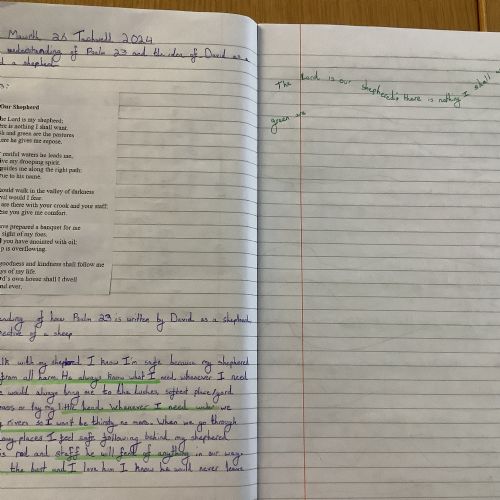 Mawrth 26 Tachwedd 2024
understanding of Psalm 23 and the idea of David as a
a shepherd
Our Shepherd
he Lord is my shepherd;
ere is nothing I shall want.
sh and green are the pastures
ere he gives me repose.
restful waters he leads me,
ive my drooping spirit.
guides me along the right path;
true to his name.
hould walk in the valley of darkness
evil would I fear.
are there with your crook and your staff;
ese you give me comfort.
ave prepared a banquet for me
sight of my foes.
you have anointed with oil;
p is overflowing.
goodness and kindness shall follow me
ys of my life.
rd's own house shall I dwell
nd ever.
nding of how Psalm 23 is written by David as a shepherd
pective of a sheep
lk with my shepherd I know I'm safe because my shepherd
from all harm. He always knows what I need whenever I need
would always bring me to the lushes, softest place/yard
rass or lay my little head. Whenever I need water we
rivers so I won't be thirsty no more. When we go through
any places I feel safe following behind my shepherd
is rod and staff he will fend of anything in our way
the best and I love him I know he would never leave
The Lord is our shepherd; there is nothing I shall
green are